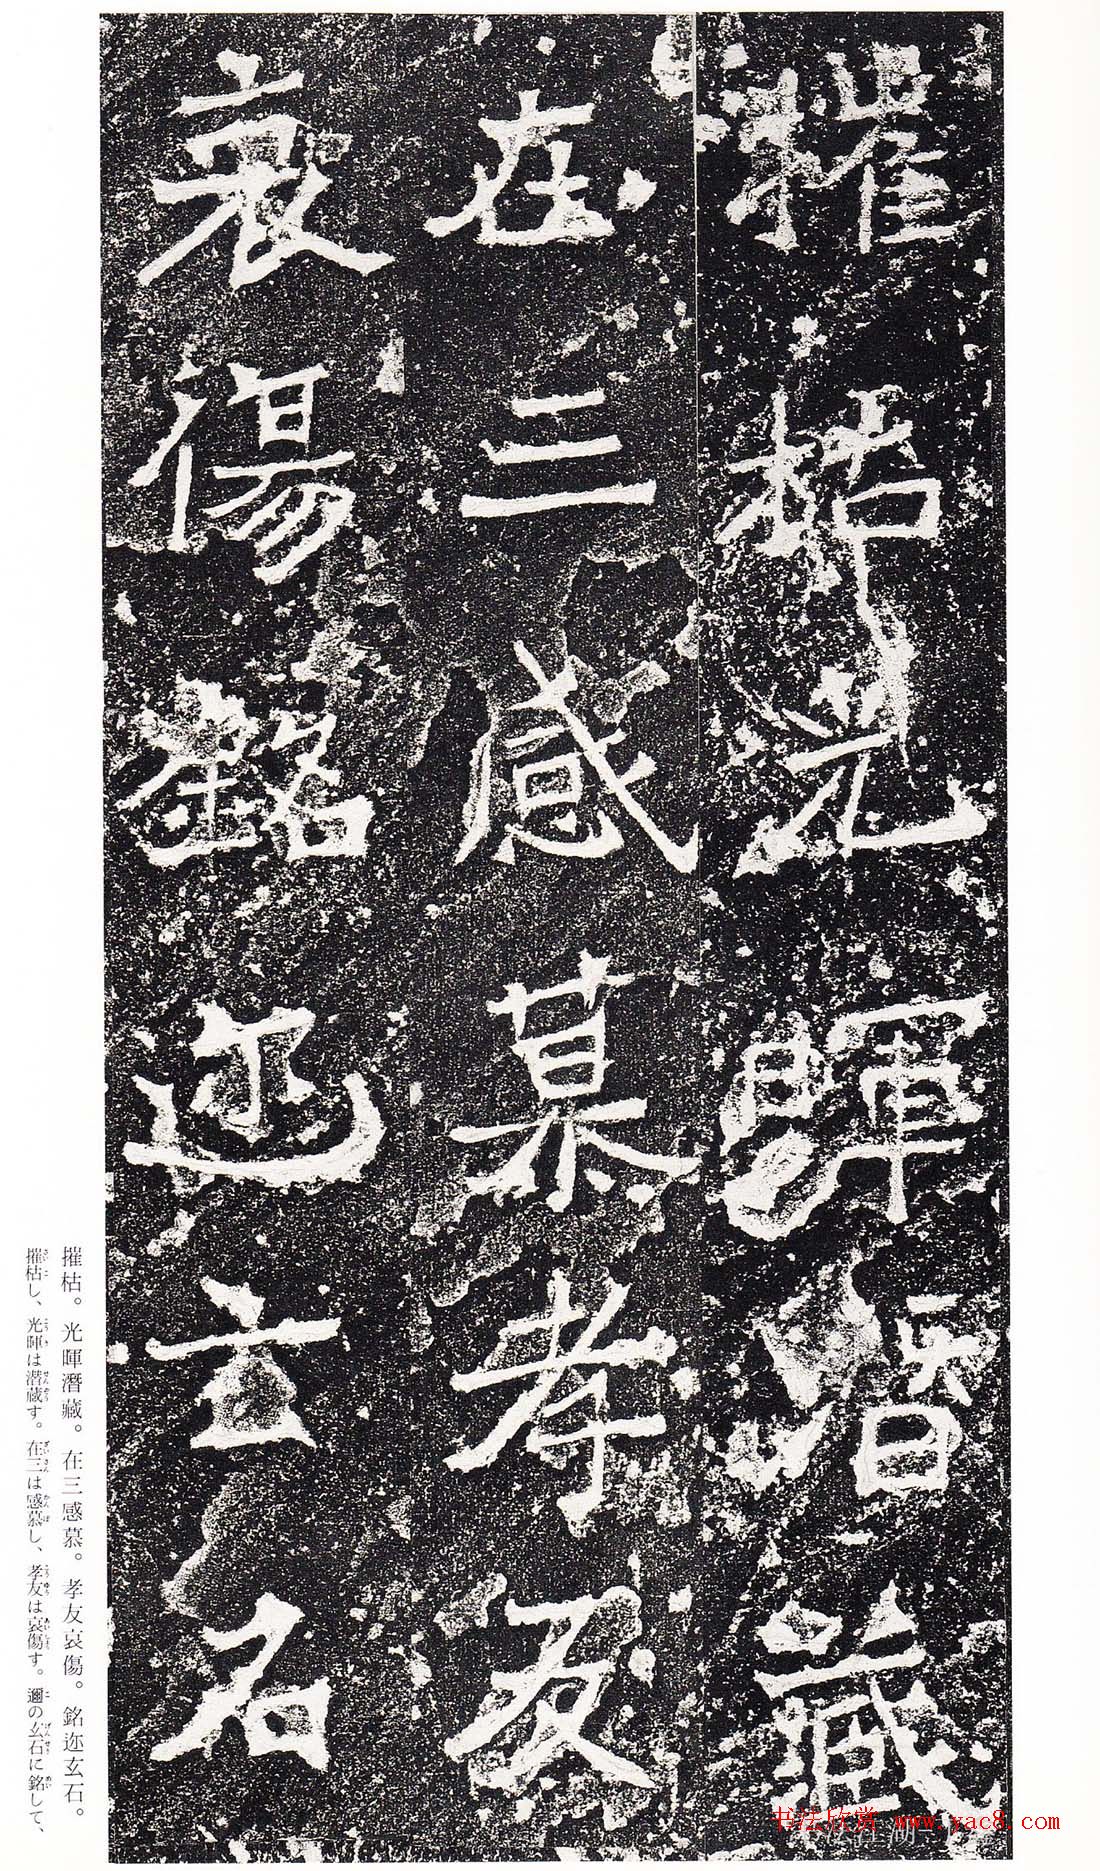 摧枯光暉潛藏
在三感慕孝友
哀傷銘迩玄石
摧枯。光暉潛藏。在三感慕。孝友哀傷。銘迩玄石。
摧枯し、光暉は潛藏す。在三は感慕し、孝友は哀傷す。邇の玄石に銘して、
书法欣赏 www.yac8.com